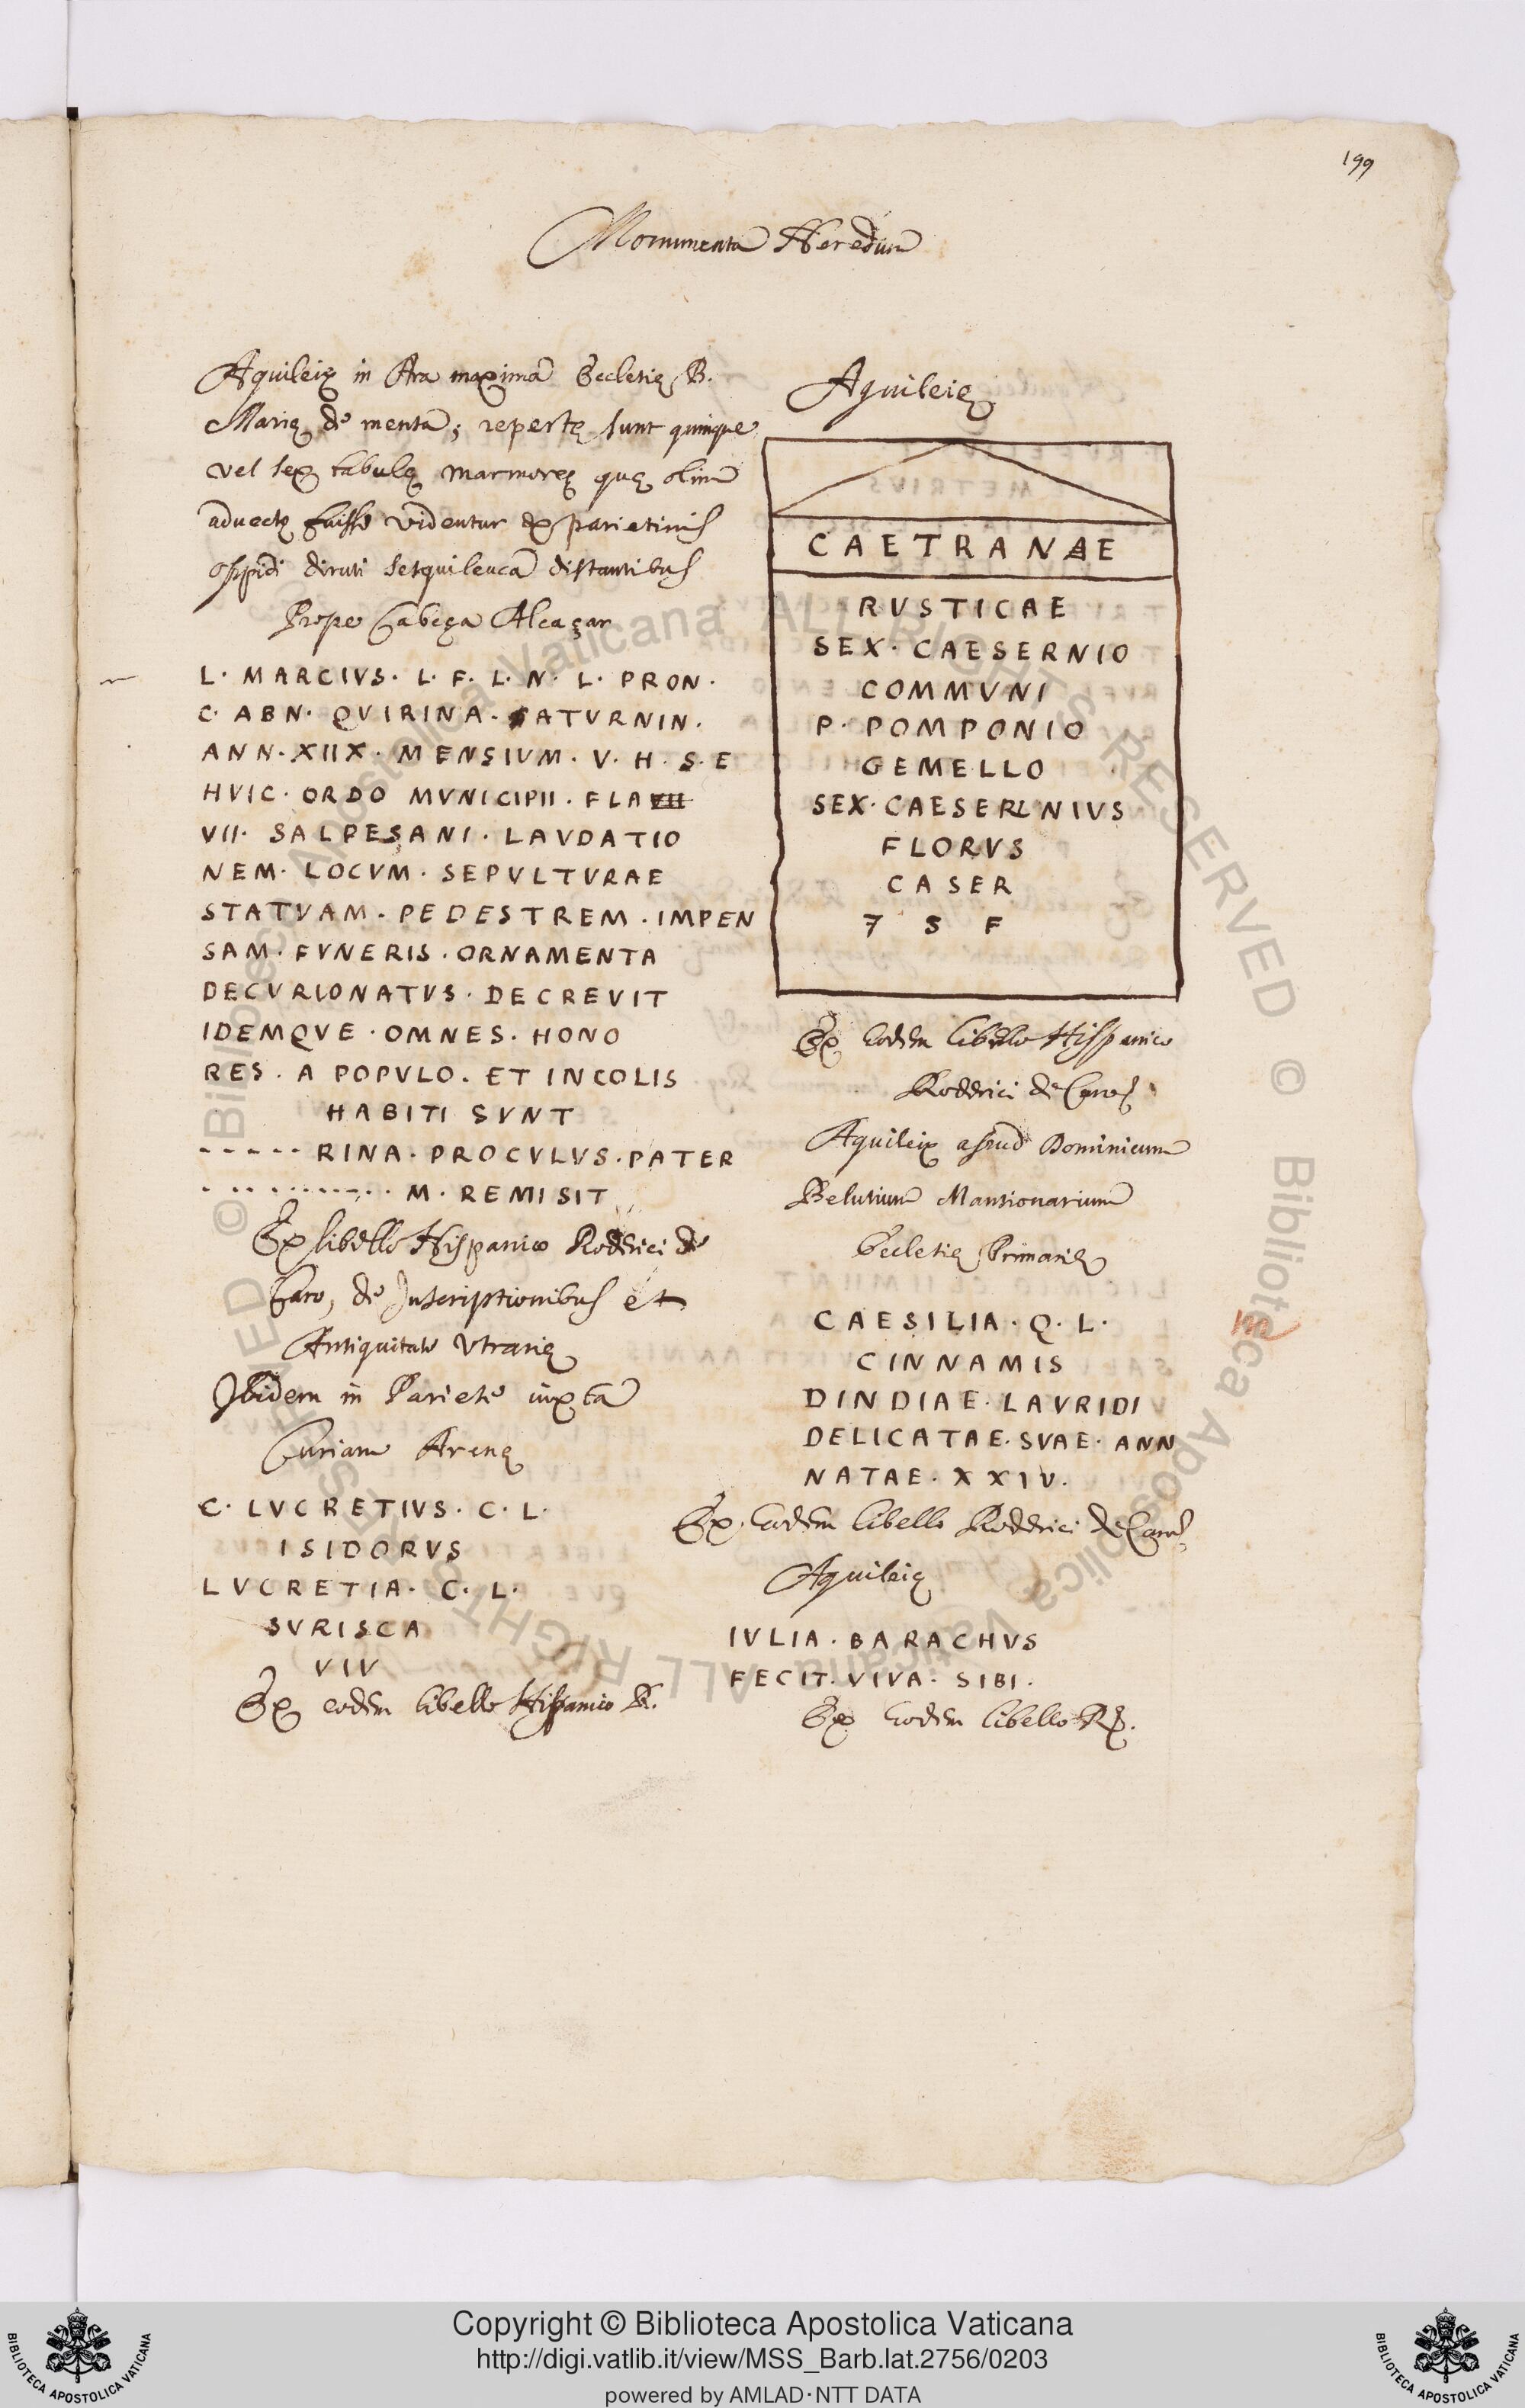 199
Monumenta Heredum
Aquileię in Ara maxima Eccletię B.
Marię de menta; repertę sunt quinque
vel sex tabulę marmoreę quę olim
aduectę fuisse videntur ex parietinis
oppidi diruti sesquileuca distantibus
Prope Cabeça Alcaçar
L. MARCIVS. L. F. L. N. L. PRON.
C. ABN. QVIRINA. SATVRNIN.
ANN. XIIX. MENSIVM. V. H. S. E
HVIC. ORDO MVNICIPII. FLA VII
VII. SALPESANI. LAVDATIO
NEM. LOCVM. SEPVLTVRAE
STATVAM. PEDESTREM. IMPEN
SAM. FVNERIS. ORNAMENTA
DECVRIONATVS. DECREVIT
IDEMQVE. OMNES. HONO
RES. A POPVLO. ET INCOLIS
HABITI SVNT
-----RINA. PROCVLVS. PATER
............ M. REMISIT
Ex libello Hispanico Rodderici de
Caro, de Inscriptionibus et
Antiquitate Vtrarię
Ibidem in Pariete iuxta
Curiam Arenę
C. LVCRETIVS. C. L.
ISIDORVS
LVCRETIA. C. L.
SVRISCA
VIV
Ex eodem libello Hispanico R.
Aquileię
CAETRANAE
RVSTICAE
SEX. CAESERNIO
COMMVNI
P. POMPONIO
GEMELLO
SEX. CAESERNIVS
FLORVS
CASER
7 S F
Ex Eodem libello Hispanico
Rodderici de Caro
Aquileię apud Dominicum
Belutium Mantionarium
Eccletię Primarię
CAESILIA. Q. L.
CINNAMIS
DINDIAE. LAVRIDI
DELICATAE. SVAE. ANN
NATAE. XXIV.
Ex Eodem libello Rodderici de Caro
Aquileię
IVLIA. BARACHVS
FECIT. VIVA. SIBI.
Ex Eodem libello R.
© Biblioteca Apostolica Vaticana ALL RIGHTS RESERVED © Biblioteca Apostolica Vaticana ALL RIGHTS RESERVED
Copyright © Biblioteca Apostolica Vaticana
http://digi.vatlib.it/view/MSS_Barb.lat.2756/0203
powered by AMLAD·NTT DATA
BIBLIOTECA APOSTOLICA VATICANA
BIBLIOTECA APOSTOLICA VATICANA